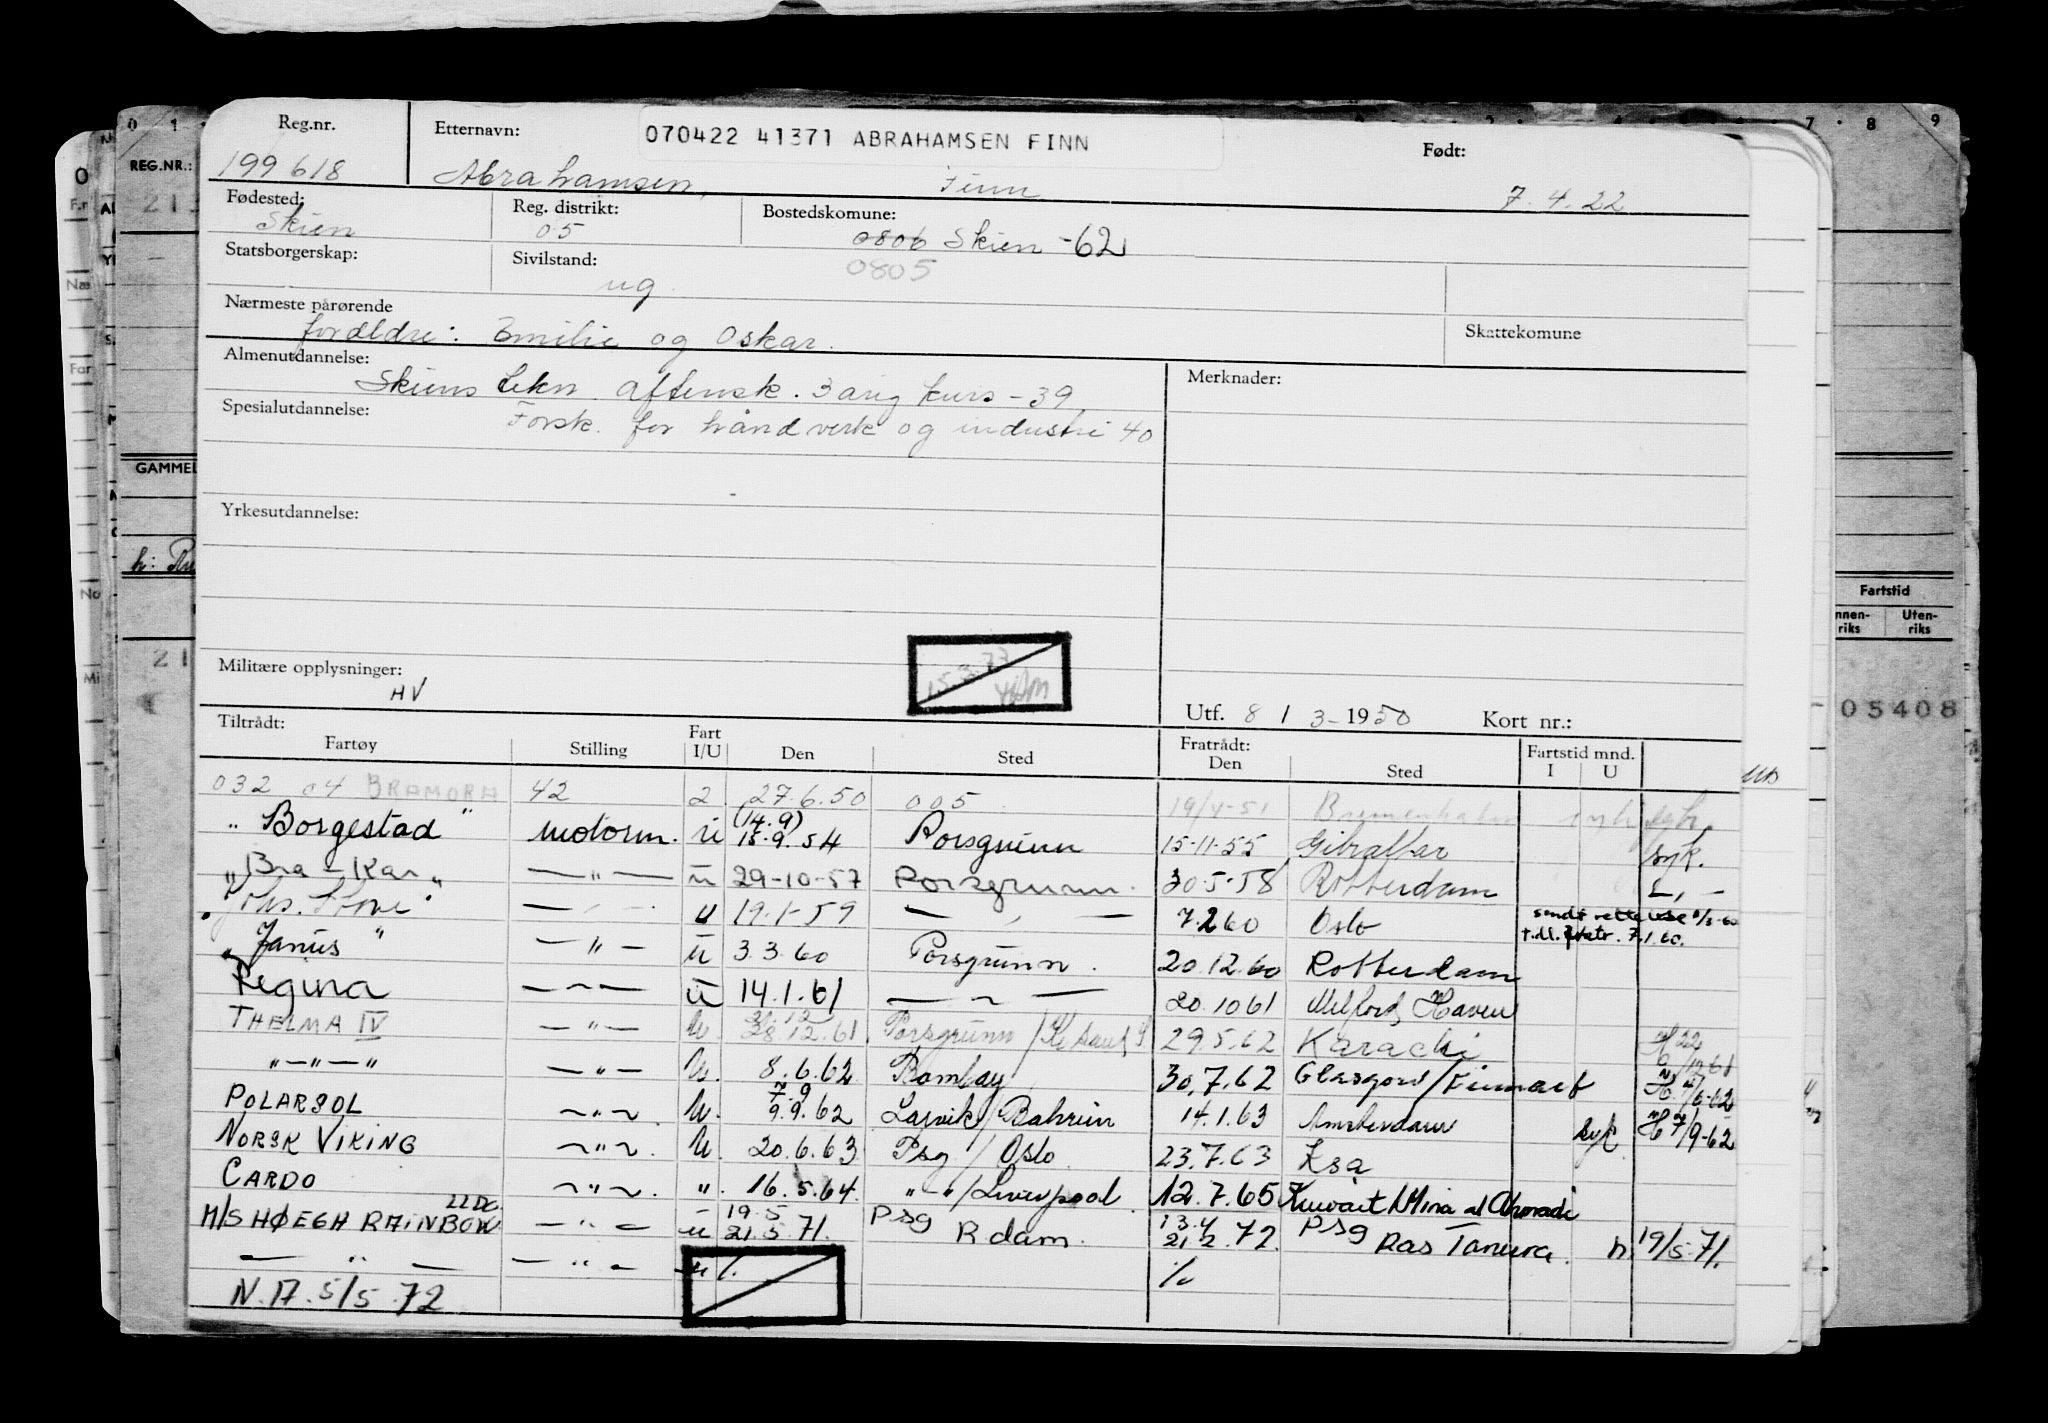 Reg.nr. Etternavn: 070422 41371 ABRAHAMSEN FINN Født:
199618 Abrahamsen, Finn 7.4.22
Fødested: Reg. distrikt: Bostedskomune:
Skien 05 0806 Skien -62
Statsborgerskap: Sivilstand: 0805
ug.
Nærmeste pårørende
foreldre: Emilie og Oskar. Skattekomune
Almenutdannelse: Merknader:
Skiens tekn. aftensk. 3 årig kurs -39
Spesialutdannelse:
Forsk. for håndverk og industri 40
Yrkesutdannelse:
15.3.73
Militære opplysninger:
HV
Utf. 8 / 3 - 1950 Kort nr.:
Tiltrådt: Fart Fratrådt: Fartstid mnd.
Fartøy Stilling I/U Den Sted Den Sted I U
032 04 BRAMORA 42 2. 27.6.50 005 19/4-51
(14.9)
"Borgestad" motorm. u 15.9.54 Porsgrunn 15-11-55 Gibraltar syk.
"Bra-Kar" — " — u 29-10-57 Porsgrunn. 30.5.58 Rotterdam — " —
"Johs. Stove" — " — u 19.1-59 — " — 7.2.60 Oslo sendt rettelse
till. fratr. 7.1.60.
"Janus" — " — u 3.3.60 Porsgrunn. 20.12.60 Rotterdam
Regina — " — u 14.1.61 — " — 20.10.61 Milford Haven
THELMA IV — " — u 28.12.61 Porsgrunn / 29.5.62 Karachi
— " — " — — " — u. 8.6.62 Bombay 30.7.62 Glasgow / Finnart
7.9
POLARSOL — " — u. 9.9.62 Larvik / Bahrein 14.1.63 Amsterdam syk 7/9-62
NORSK VIKING — " — u. 20.6.63 Psg / Oslo 23.7.63 Ksa
CARDO — " — ". 16.5.64. " — " / Liverpool 12.7.65 Kuwait / Mina al Ahmadi
LLDC. 19.5 13.4
M/S HØEGH RAINBOW — " — u 21.5.71. Psg R dam. 21.2.72. Psg Ras Tanura. n. 19/5.71.
— " — — " — u %. %
N. 17. 5/5.72
O
REG.NR.:
GAMMEL
Fartstid
Uten-
riks
riks
05408
0 1 7 8 9